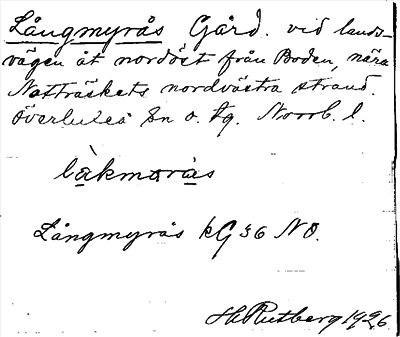 Långmyrås Gård. vid lands-
vägen åt nordöst från Boden, nära
Natträskets nordvästra strand.
Överluleå Sn o. tg. Norrb. l.
làkmɑrås
Långmyrås kG 36 NO.
H. Rutberg 1926.